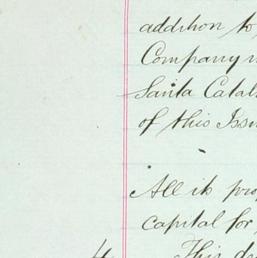 addition to
Company
Santa Catal
of this Issu
All its prop
capital for
4 This